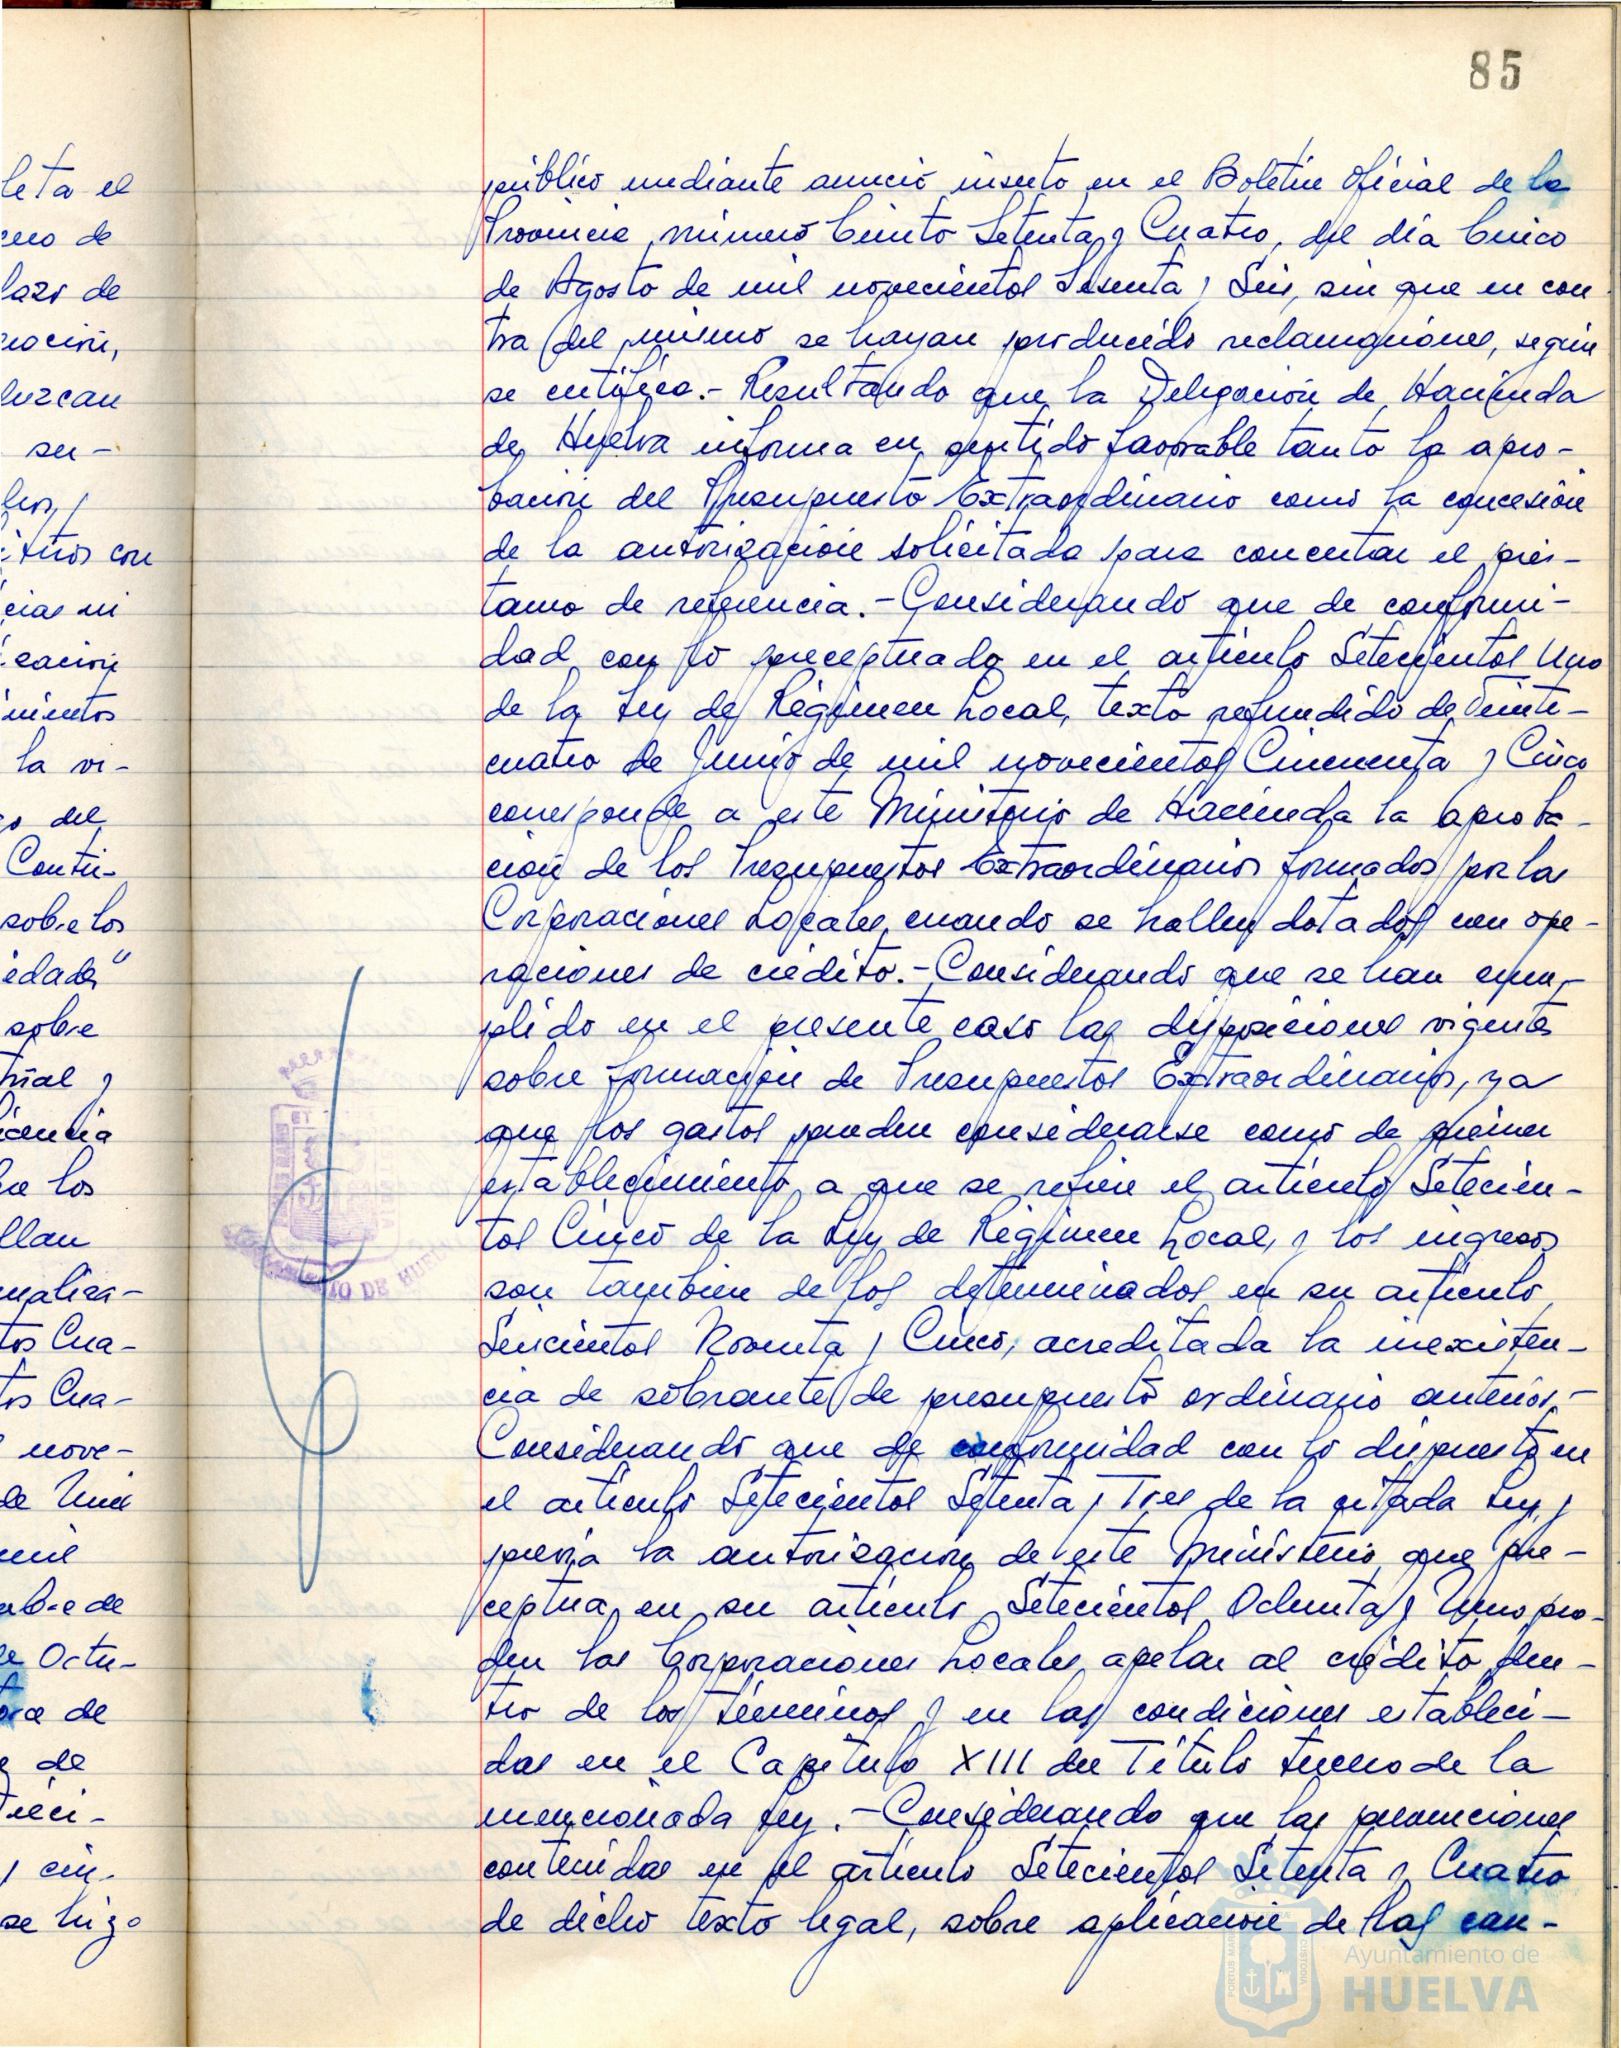 85
público mediante anuncio inserto en el Boletin Oficial de la
Provincia, número Ciento Setenta y Cuatro, del día Cinco
de Agosto de mil novecientos Sesenta y Seis, sin que en con
tra del mismo se hayan producido reclamaciones, según
se certifica.- Resultando que la Delegación de Hacienda
de Huelva informa en sentido favorable tanto la apro-
bación del Presupuesto Extraordinario como la concesión
de la autorización solicitada para concertar el prés-
tamo de referencia.- Considerando que de conformi-
dad con lo preceptuado en el artículo Setecientos Uno
de la Ley de Régimen Local, texto refundido de Veinti-
cuatro de Junio de mil novecientos Cincuenta y Cinco
corresponde a este Ministerio de Hacienda la aproba-
ción de los Presupuestos Extraordinarios formados por las
Corporaciones Locales, cuando se hallen dotados con ope-
raciones de crédito.- Considerando que se han cum-
plido en el presente caso las disposiciones vigentes
sobre formación de Presupuestos Extraordinarios, ya
que los gastos pueden considerarse como de primer
establecimiento a que se refiere el artículo Setecien-
tos Cinco de la Ley de Régimen Local, y los ingresos
son también de los determinados en su artículo
Seiscientos Noventa y Cinco, acreditada la inexisten-
cia de sobrante de presupuesto ordinario anterior.-
Considerando que de conformidad con lo dispuesto en
el artículo Setecientos Setenta y Tres de la citada Ley, y
previa la autorización de este Ministerio que pre-
ceptua en su artículo Setecientos Ochenta y Uno, pue-
den las Corporaciones Locales apelar al crédito den-
tro de los términos y en las condiciones estableci-
das en el Capítulo XIII del Título tercero de la
mencionada Ley.- Considerando que las prevenciones
contenidas en el artículo Setecientos Setenta y Cuatro
de dicho texto legal, sobre aplicación de las can-
leta el
lazo de
duzcan
su-
itúos con
la vi-
del
Contri-
sobre los
edades"
sobre
los
llan
tos Cua-
tos Cua-
nove-
de
Octu-
de
de
se hizo
DE HUEL
Ayuntamiento de
HUELVA